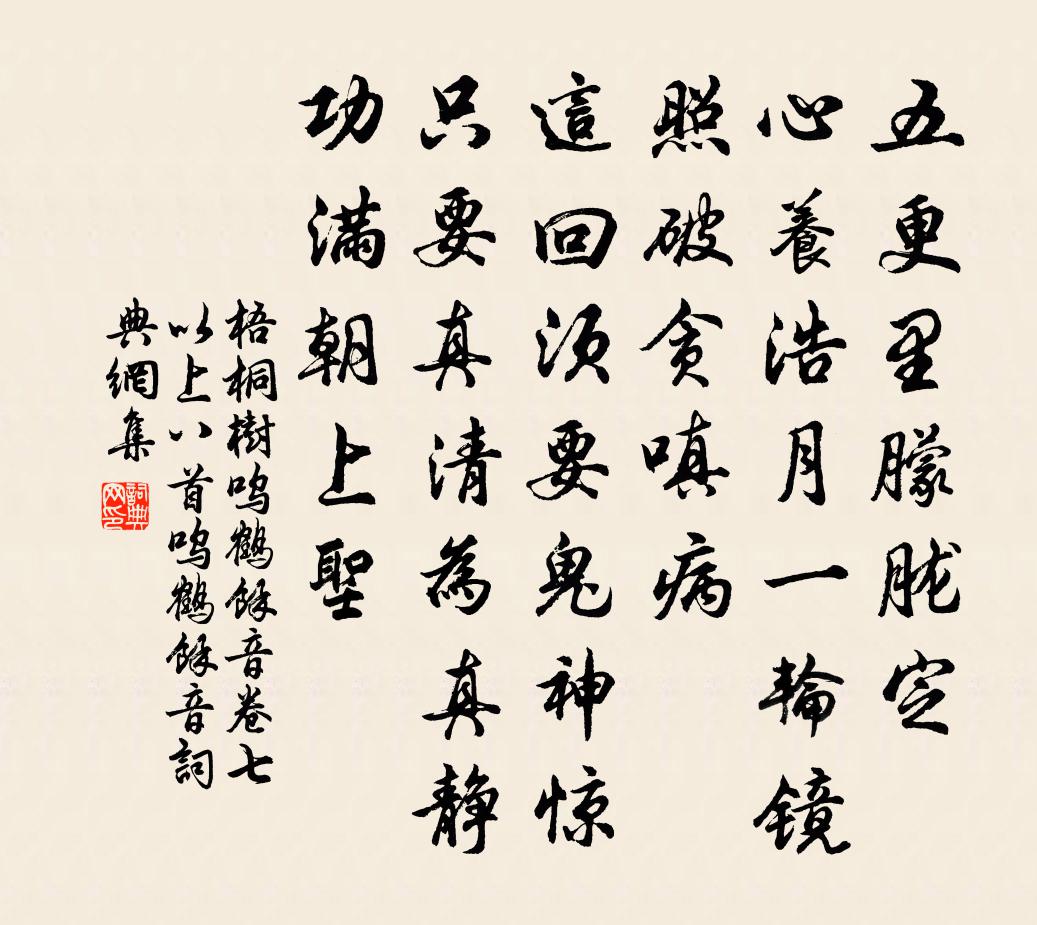 五更里朦胧定
心養浩月一輪镜
照破贪嗔病
這回须要鬼神惊
只要真清為真静
功满朝上聖
梧桐樹鸣鶴餘音卷七
以上八首鸣鶴餘音詞
典網集
詞典网印